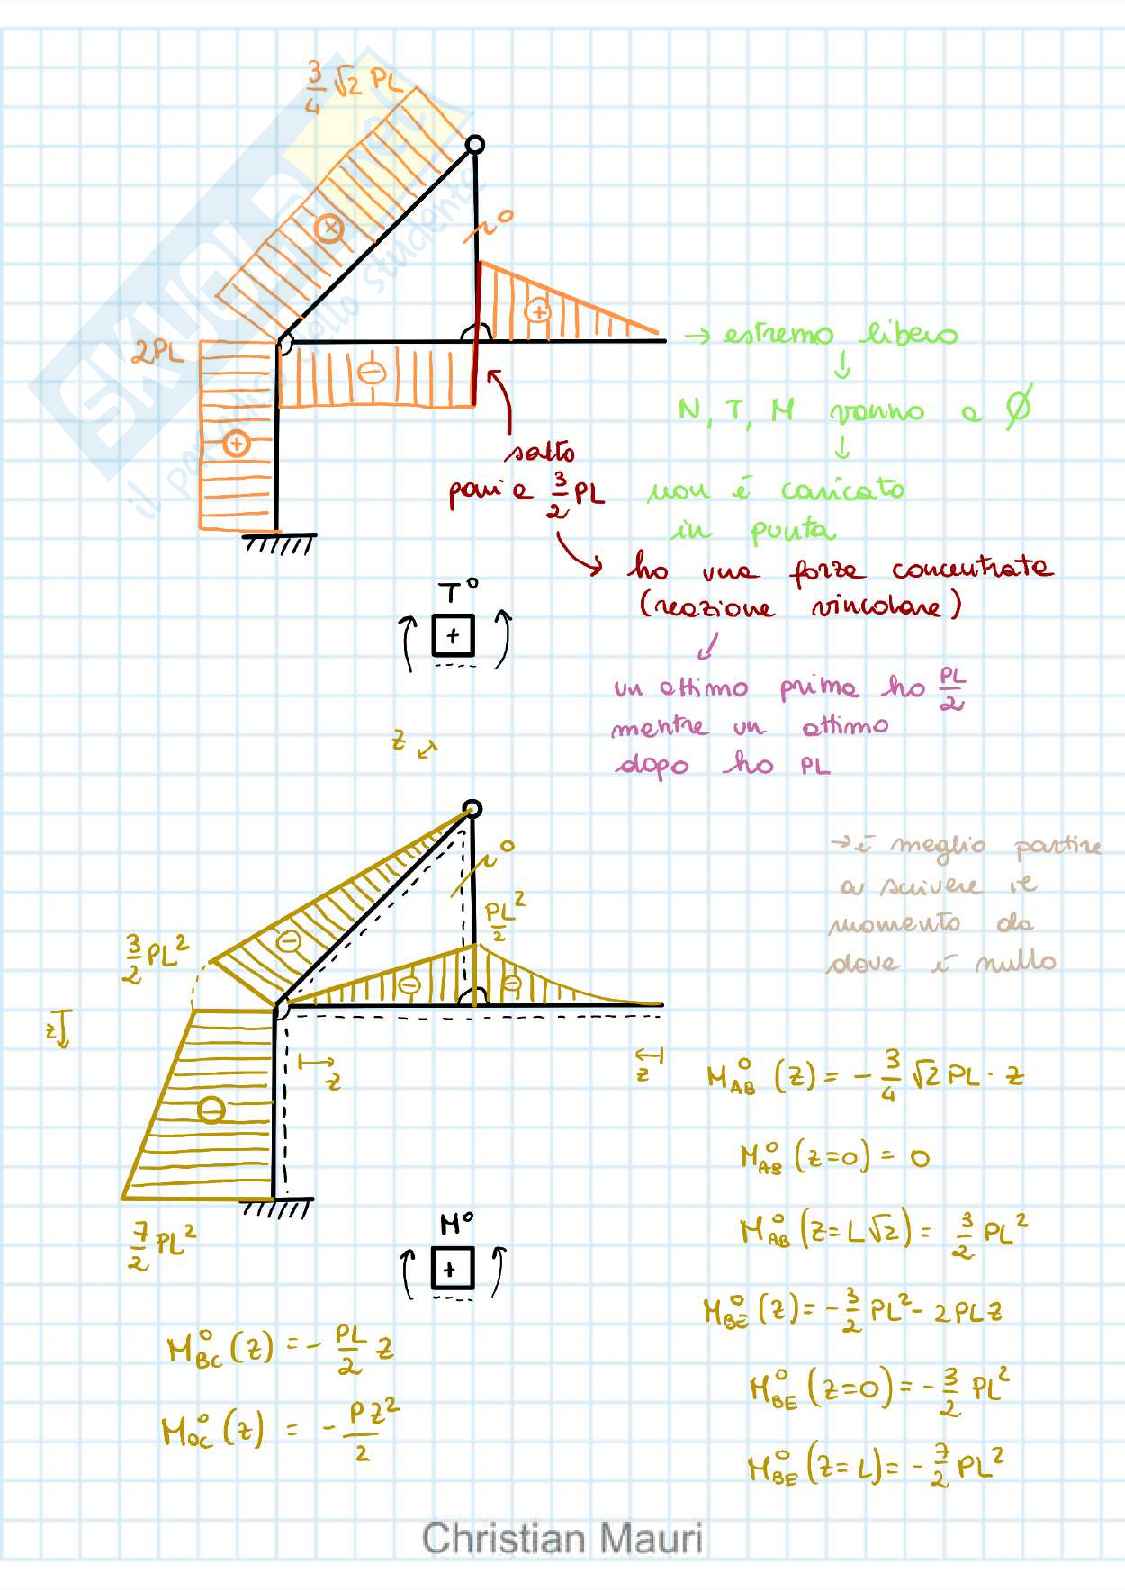 3/4 √2 PL
+
~0
2PL
+
−
+
→ estremo libero
↓
N, T, M vanno a Ø
↓
non è caricato
in punta
salto
pari a 3/2 PL
ho una forza concentrata
(reazione vincolare)
un attimo prima ho PL/2
mentre un attimo
dopo ho PL
T°
+
z
SKUOLA
il portale dello studente
~0
PL²/2
3/2 PL²
−
−
−
−
→ è meglio partire
a scrivere il
momento da
dove è nullo
z
z
z
7/2 PL²
M°
+
M°AB (z) = - 3/4 √2 PL · z
M°AB (z=0) = 0
M°AB (z=L√2) = 3/2 PL²
M°BE (z) = - 3/2 PL² - 2PLz
M°BE (z=0) = - 3/2 PL²
M°BE (z=L) = - 7/2 PL²
M°BC (z) = - PL/2 z
M°DC (z) = - Pz²/2
Christian Mauri